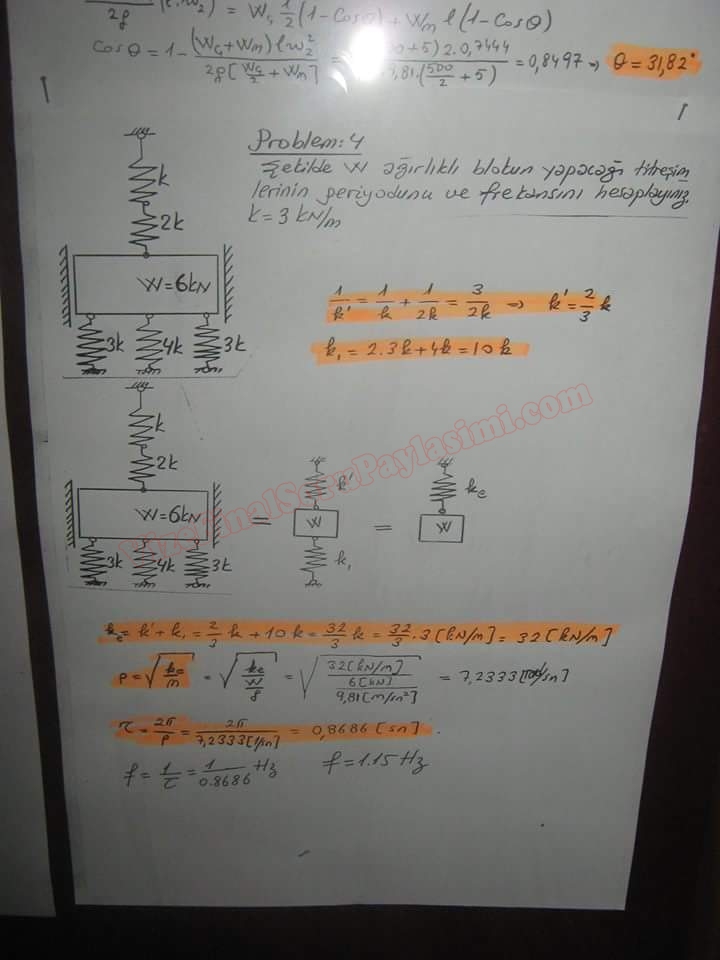 2g (l.w₂) = W_G 1/2 (1-Cosθ) + W_m l (1-Cosθ)
Cosθ = 1- (W_G+W_m) l w₂² / 2g[W_G/2 + W_m] = +5) 2.0,7444 / 9,81.(500/2 + 5) = 0,8497 ⇒ θ = 31,82°
Problem: 4
Şekilde W ağırlıklı blokun yapacağı titreşim
lerinin periyodunu ve frekansını hesaplayınız.
k = 3 kN/m
k
2k
W=6kN
3k 4k 3k
1/k' = 1/k + 1/2k = 3/2k ⇒ k' = 2/3 k
k₁ = 2.3k+4k = 10k
k
2k
W=6kN
3k 4k 3k
=
k'
W
k₁
=
ke
W
OrjinalSoruPaylasimi.com
ke = k'+k₁ = 2/3 k + 10k = 32/3 k = 32/3 . 3 [kN/m] = 32 [kN/m]
p = √(ke/m) = √(ke/(W/g)) = √(32[kN/m] / (6[kN] / 9,81[m/sn²])) = 7,2333 [rad/sn]
τ = 2π/p = 2π/7,2333[1/sn] = 0,8686 [sn].
f = 1/τ = 1/0.8686 Hz f = 1.15 Hz